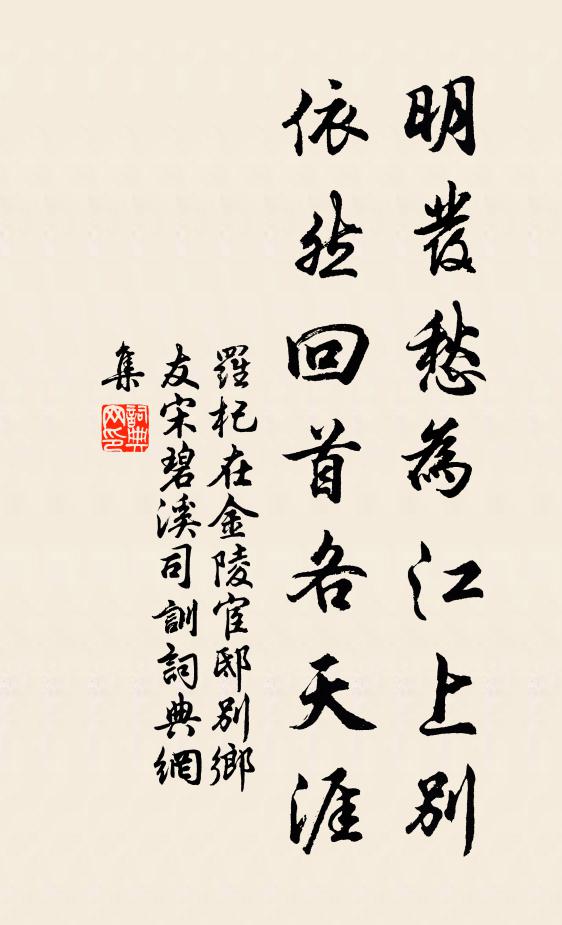 明發愁為江上別
依然回首各天涯
羅杞在金陵宦邸別鄉
友宋碧溪司訓詞典網
集
詞典
网印